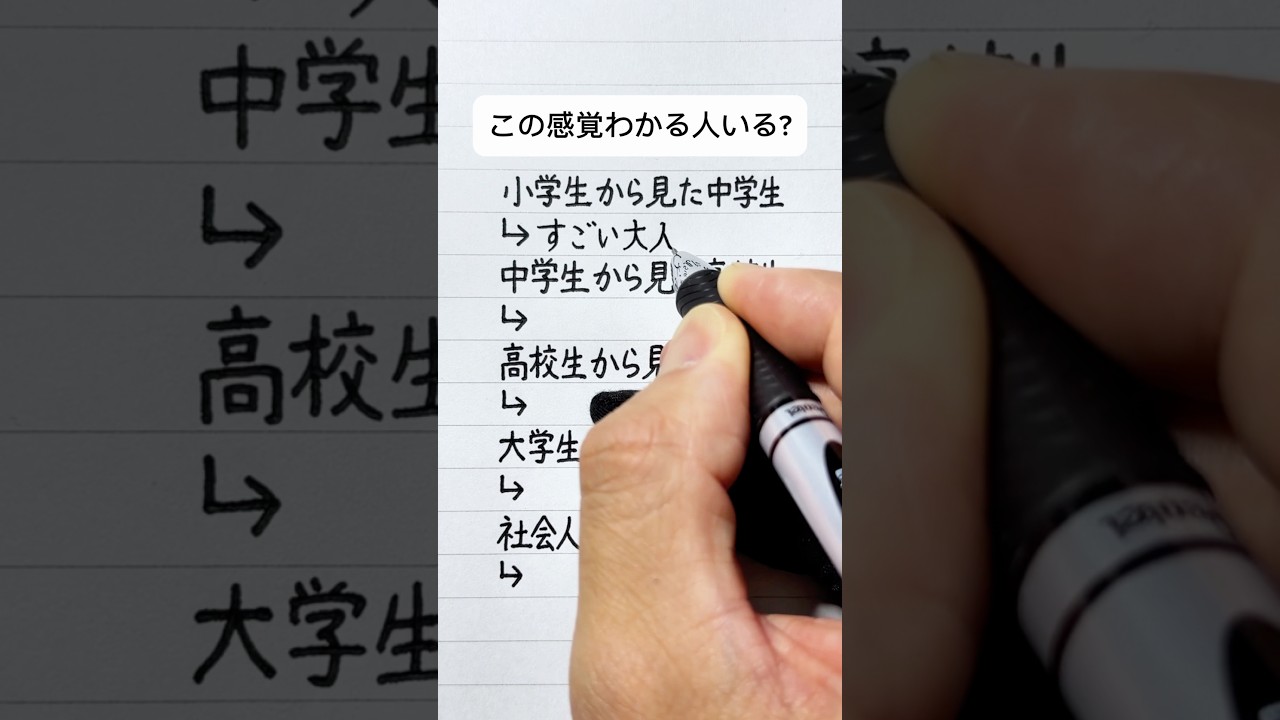 この感覚わかる人いる?
小学生から見た中学生
↳すごい大人
中学生から見
↳
高校生から見
↳
大学生
↳
社会人
↳